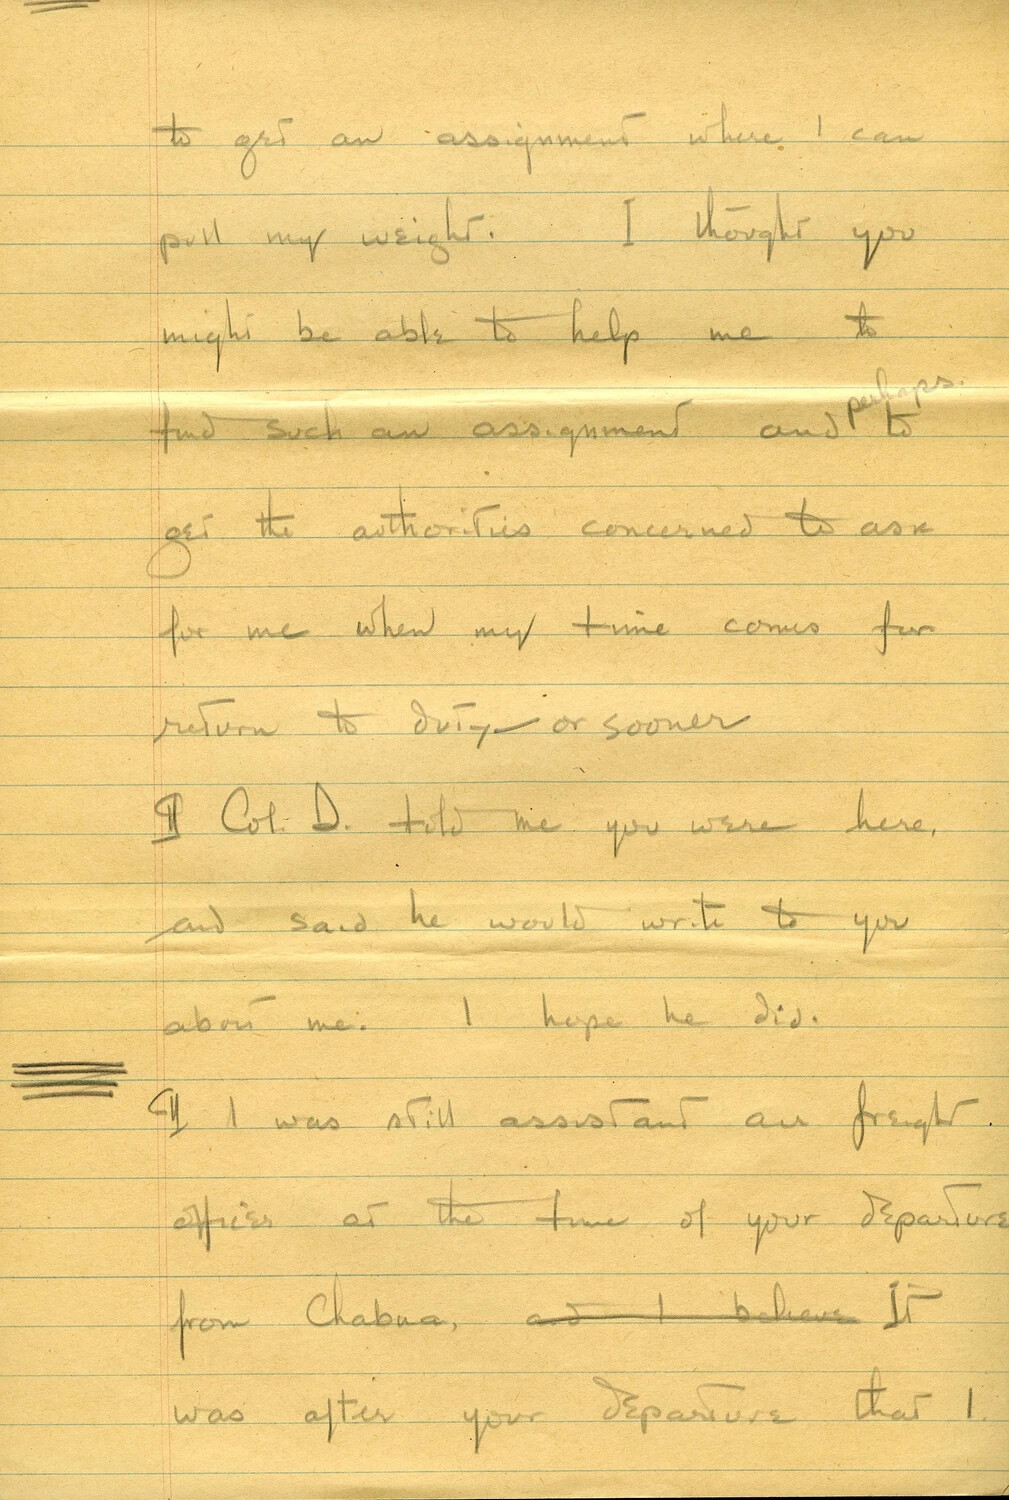 to get an assignment where I can
pull my weight. I thought you
might be able to help me to
find such an assignment and perhaps to
get the authorities concerned to ask
for me when my time comes for
return to duty or sooner
¶ Col. D. told me you were here,
and said he would write to you
about me. I hope he did.
¶ I was still assistant air freight
officer at the time of your departure
from Chabua, and I believe It
was after your departure that I